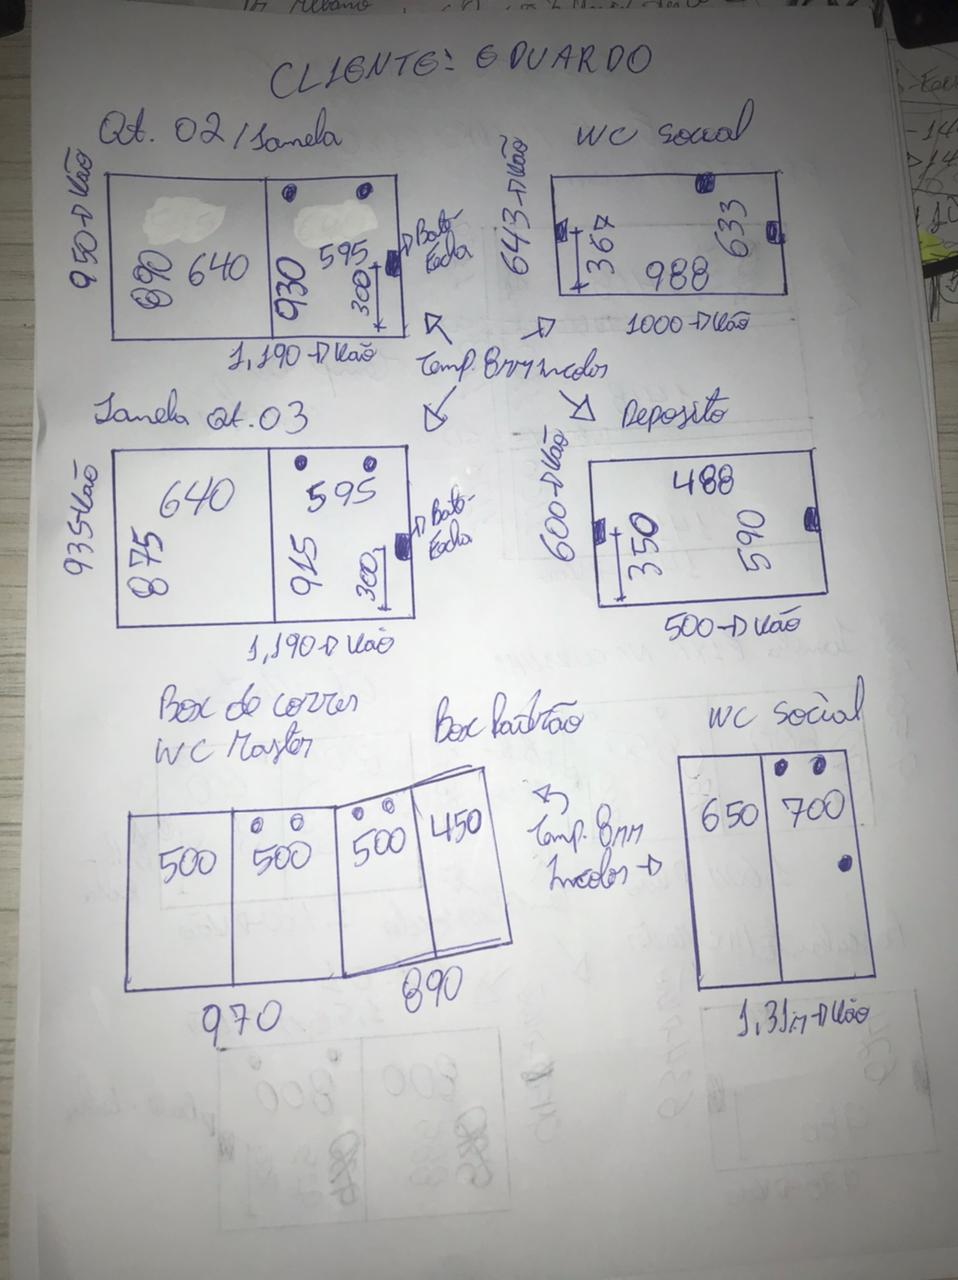 CLIENTE: EDUARDO
Qt. 02/Janela
950→Vão
890
640
930
595
300
Bate-
Fecha
1,190→Vão
WC Social
643→Vão
367
633
988
1000→Vão
Temp. 8mm Incolor
Janela Qt. 03
935→Vão
640
875
595
915
300
Bate-
Fecha
1,190→Vão
Deposito
600→Vão
488
350
590
500→Vão
Box de correr
WC Master
500
500
500
450
970
890
Box Padrão
Temp. 8mm
Incolor→
WC Social
650
700
1,31m→Vão